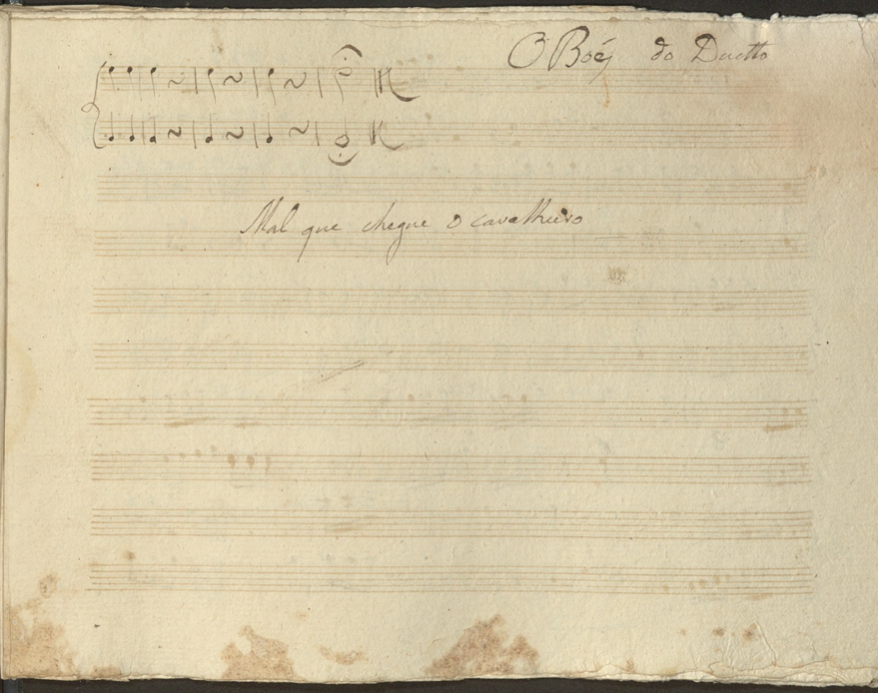 O Boés do Duetto
Mal que chegue o cavalheiro